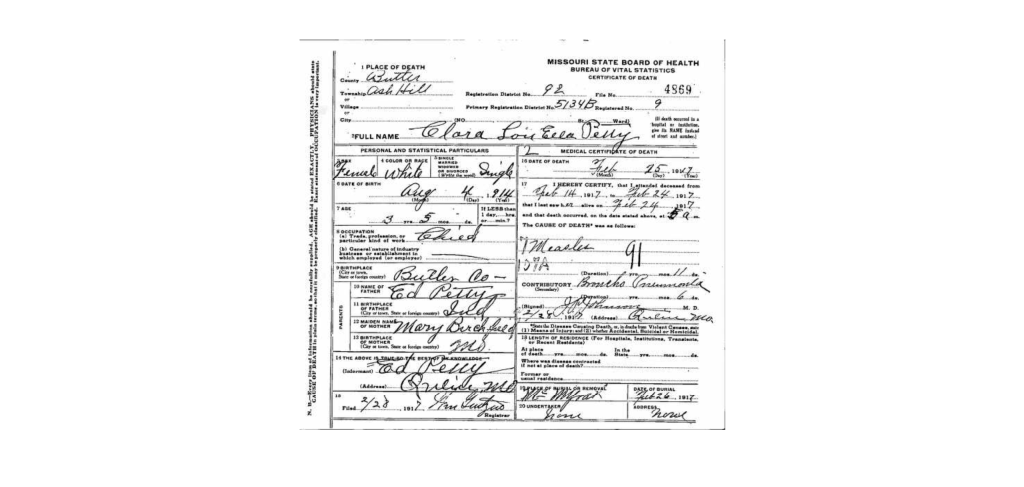 MISSOURI STATE BOARD OF HEALTH
BUREAU OF VITAL STATISTICS
CERTIFICATE OF DEATH
1 PLACE OF DEATH
County Butler
Township Ash Hill
or
Village
or
City
Registration District No. 92 File No. 4869
Primary Registration District No. 5134B Registered No. 9
(NO. St. Ward)
(If death occurred in a
hospital or institution,
give its NAME instead
of street and number.)
2 FULL NAME Clara Lois Ella Petty
PERSONAL AND STATISTICAL PARTICULARS
3 SEX
Female
4 COLOR OR RACE
White
5 SINGLE
MARRIED
WIDOWED
OR DIVORCED
(Write the word)
Single
6 DATE OF BIRTH
Aug 4 1914
(Month) (Day) (Year)
7 AGE
3 yrs. 5 mos. ds.
If LESS than
1 day,....hrs.
or....min.?
8 OCCUPATION
(a) Trade, profession, or
particular kind of work
Child
(b) General nature of industry
business or establishment in
which employed (or employer)
9 BIRTHPLACE
(City or town,
State or foreign country)
Butler Co -
PARENTS
10 NAME OF
FATHER
Ed Petty
11 BIRTHPLACE
OF FATHER
(City or town, State or foreign country)
Ind
12 MAIDEN NAME
OF MOTHER
Mary
13 BIRTHPLACE
OF MOTHER
(City or town, State or foreign country)
Mo.
14 THE ABOVE IS TRUE TO THE BEST OF MY KNOWLEDGE
(Informant) Ed Petty
(Address) Qulin Mo
15
Filed 2/28 1917
Registrar
2 MEDICAL CERTIFICATE OF DEATH
16 DATE OF DEATH
Feb 25 1917
(Month) (Day) (Year)
17 I HEREBY CERTIFY, that I attended deceased from
Feb 14 1917 to Feb 24 1917
that I last saw h alive on Feb 24 1917
and that death occurred, on the date stated above, at 5 a m.
The CAUSE OF DEATH* was as follows:
Measles
91
107A
(Duration) yrs. mos. 11 ds.
CONTRIBUTORY Broncho Pneumonia
(Secondary)
(Duration) yrs. mos. 6 ds.
(Signed) Johnson M. D.
2/28 1917 (Address) Qulin Mo.
*State the Disease Causing Death, or, in deaths from Violent Causes, state
(1) Means of Injury; and (2) whether Accidental, Suicidal or Homicidal.
18 LENGTH OF RESIDENCE (For Hospitals, Institutions, Transients,
or Recent Residents)
At place
of death yrs. mos. ds.
In the
State yrs. mos. ds.
Where was disease contracted
if not at place of death?
Former or
usual residence
19 PLACE OF BURIAL OR REMOVAL
DATE OF BURIAL
Feb 26 1917
20 UNDERTAKER
none
ADDRESS
none
N. B.—Every item of information should be carefully supplied. AGE should be stated EXACTLY. PHYSICIANS should state
CAUSE OF DEATH in plain terms, so that it may be properly classified. Exact statement of OCCUPATION is very important.